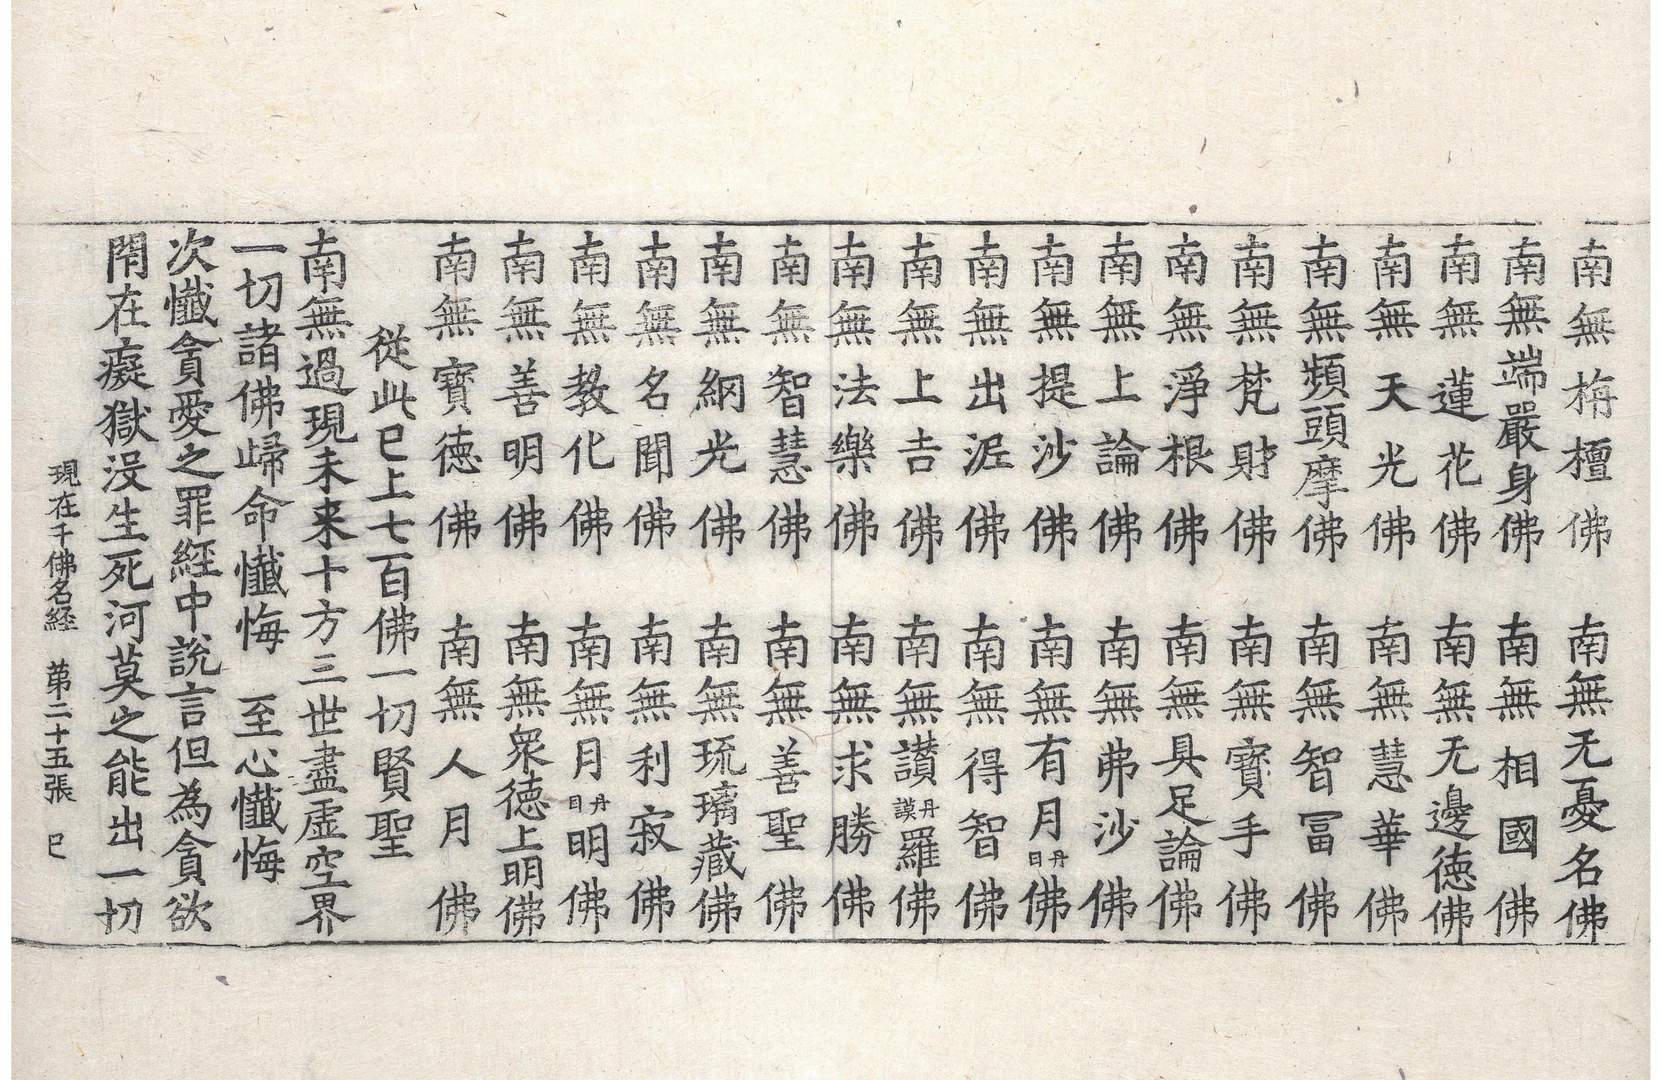 南無栴檀佛　南無无憂名佛
南無端嚴身佛　南無相國佛
南無蓮花佛　南無无邊德佛
南無天光佛　南無慧華佛
南無頻頭摩佛　南無智冨佛
南無梵財佛　南無寶手佛
南無淨根佛　南無具足論佛
南無上論佛　南無弗沙佛
南無提沙佛　南無有月丹日佛
南無出泥佛　南無得智佛
南無上吉佛　南無讃丹謨羅佛
南無法樂佛　南無求勝佛
南無智慧佛　南無善聖佛
南無網光佛　南無琉璃藏佛
南無名聞佛　南無利寂佛
南無教化佛　南無月丹日明佛
南無善明佛　南無衆德上明佛
南無寶德佛　南無人月佛
從此已上七百佛一切賢聖
南無過現未来十方三世盡虛空界
一切諸佛歸命懺悔　至心懺悔
次懺貪愛之罪經中說言但為貪欲
閇在癡獄沒生死河莫之能出一切
現在千佛名経　苐二十五張　巳